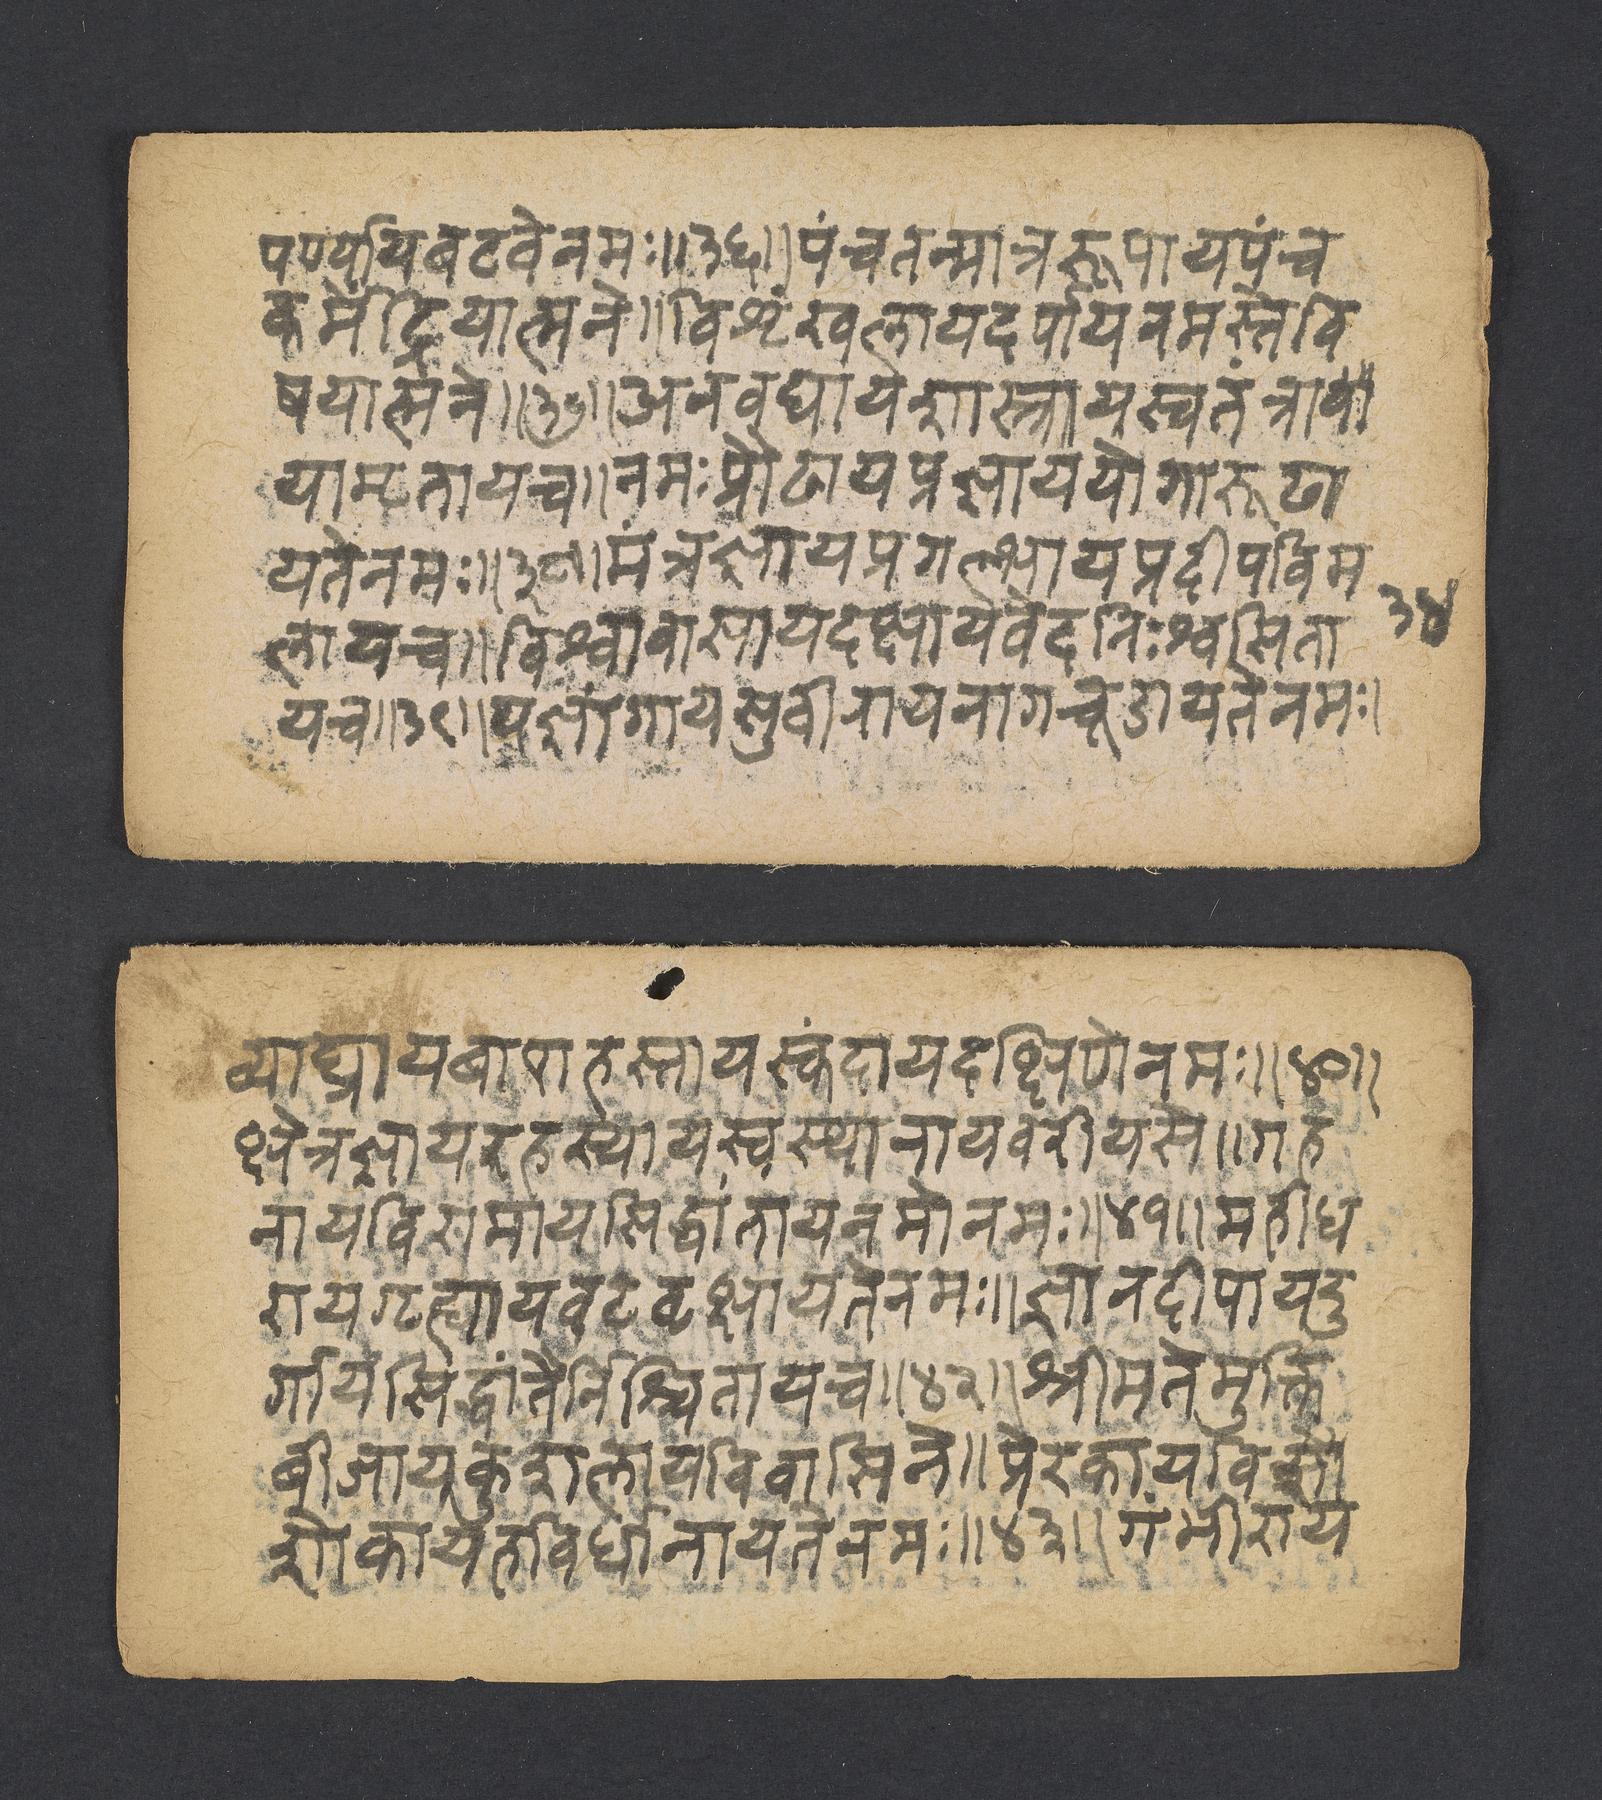 पर्ण्यायबटवेनमः॥३६॥पंचतन्मात्ररूपायपंच
कर्मेंद्रियात्मने॥विशृंखलायदर्पायनमस्तेवि
षयात्मने॥३७॥अनवद्यायशास्त्रायस्वतंत्राया
यामृतायच॥नमःप्रौढायप्रज्ञाययोगारूढा
यतेनमः॥३८॥मंत्रज्ञायप्रगल्भायप्रदीपविम
लायच॥विश्वावासायदक्षायवेदनिःश्वसिता
यच॥३९॥यज्ञांगायसुवीरायनागचूडायतेनमः।
३४
व्याघ्रायबाणहस्तायस्कंदायदक्षिणेनमः॥४०॥
क्षेत्रज्ञायरहस्यायस्वस्थानायवरीयसे॥गह
नायविरामायसिद्धांतायनमोनमः॥४१॥महीध
रायगृह्यायवटवृक्षायतेनमः॥ज्ञानदीपायदु
र्गायसिद्धांतैर्निश्चितायच॥४२॥श्रीमतेमुक्ति
बीजायकुशलायविवासिने॥प्रेरकायविशो
शोकायहविर्धानायतेनमः॥४३॥गंभीराय